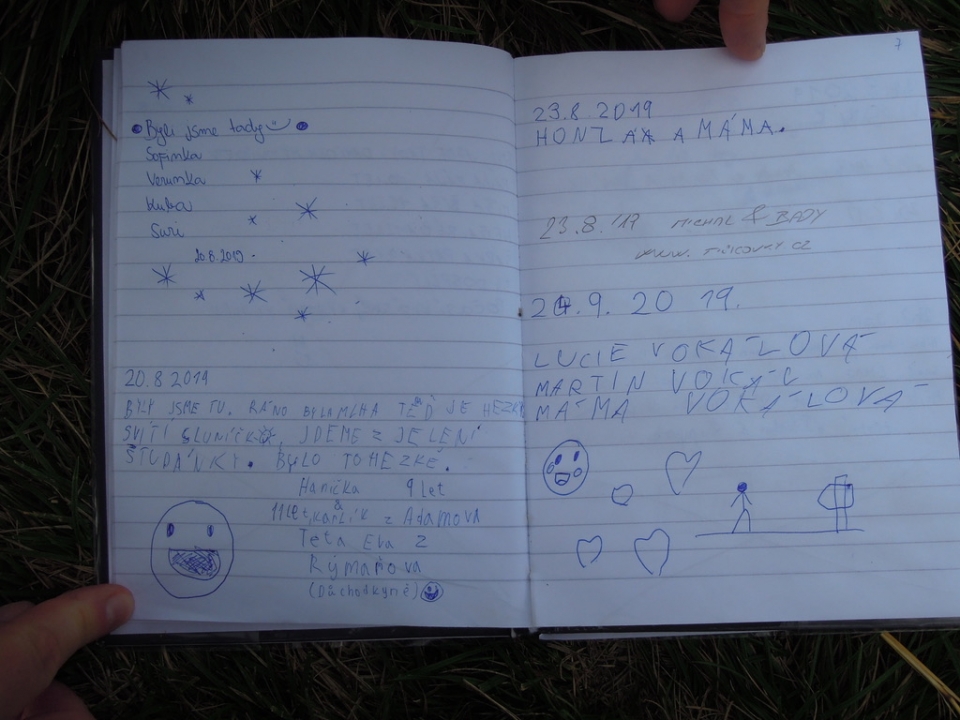 Byli jsme tady
Sofinka
Verunka
Kuba
Suri
20.8.2019.
20.8 2019
BYLY JSME TU. RÁNO BYLA MLHA TEĎ JE HEZKY
SVÍTÍ SLUNÍČKO, JDEME Z JELENÍ
ŠTUDÁNKY. BYLO TO HEZKÉ.
Hanička 9 let
&
11 let, Karlík z Adamova
Teta Eva z
Rýmařova
(Důchodkyně)
7
23.8.2019
HONZA A MÁMA.
23.8.'19 & BADY
24.9. 20 19.
LUCIE VOKÁLOVÁ
MARTIN VOKÁL
MÁMA VOKÁLOVÁ